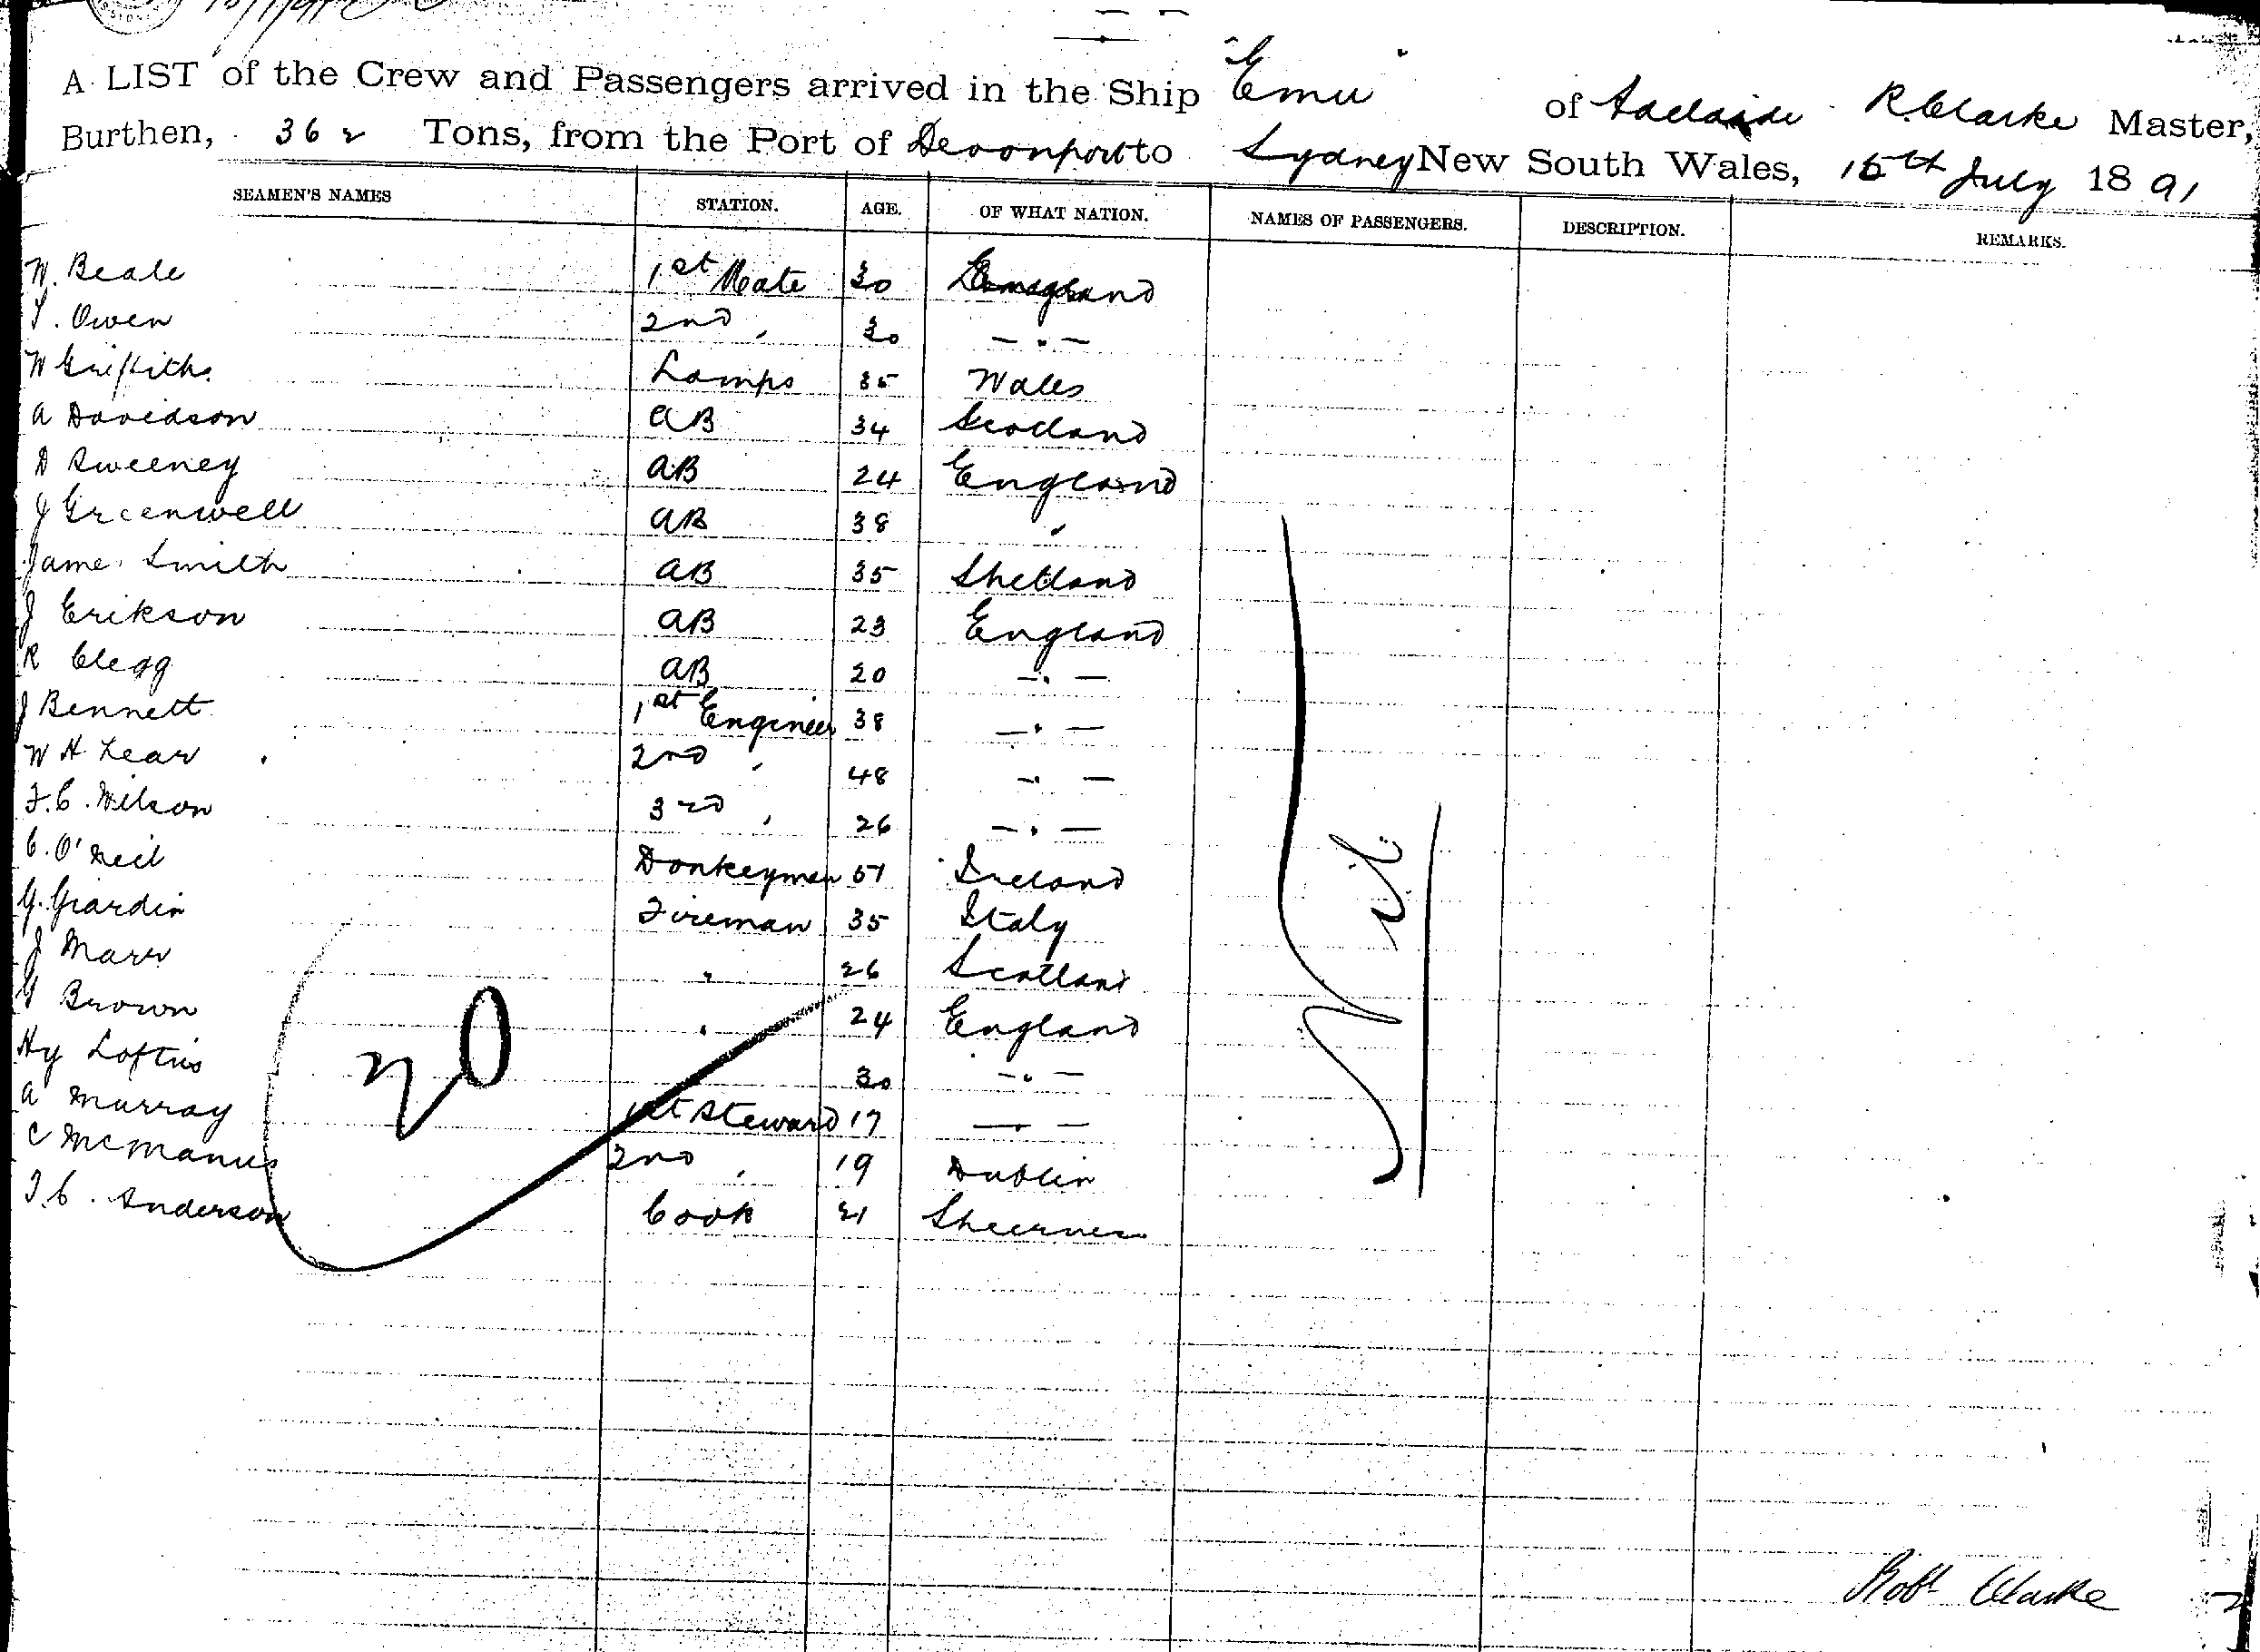 A LIST of the Crew and Passengers arrived in the Ship "Emu" of Adelaide R. Clarke Master,
Burthen, 362 Tons, from the Port of Devonport to Sydney New South Wales, 15th July 1891
SEAMEN'S NAMES STATION. AGE. OF WHAT NATION. NAMES OF PASSENGERS. DESCRIPTION. REMARKS.
W. Beale 1st Mate 30 England
T. Owen 2nd , 30 — " —
W Griffiths Lamps 35 Wales
A Davidson AB 34 Scotland
D Sweeney AB 24 England
J Greenwell AB 38 "
James Smith AB 35 Shetland
J Erikson AB 23 England
R Clegg AB 20 — " —
J Bennett 1st Engineer 38 — " —
W H Lear 2nd , 48 — " —
F. C. Wilson 3rd , 26 — " —
C. O'Neil Donkeyman 51 Ireland
G. Giardin Fireman 35 Italy
J Marr " 26 Scotland
G Brown " 24 England
Hy Loftus 30 — " —
A Murray 1st Steward 17 — " —
C McManus 2nd , 19 Dublin
T. C. Anderson Cook 21 Sheerness
20
Nil
Robt Clarke